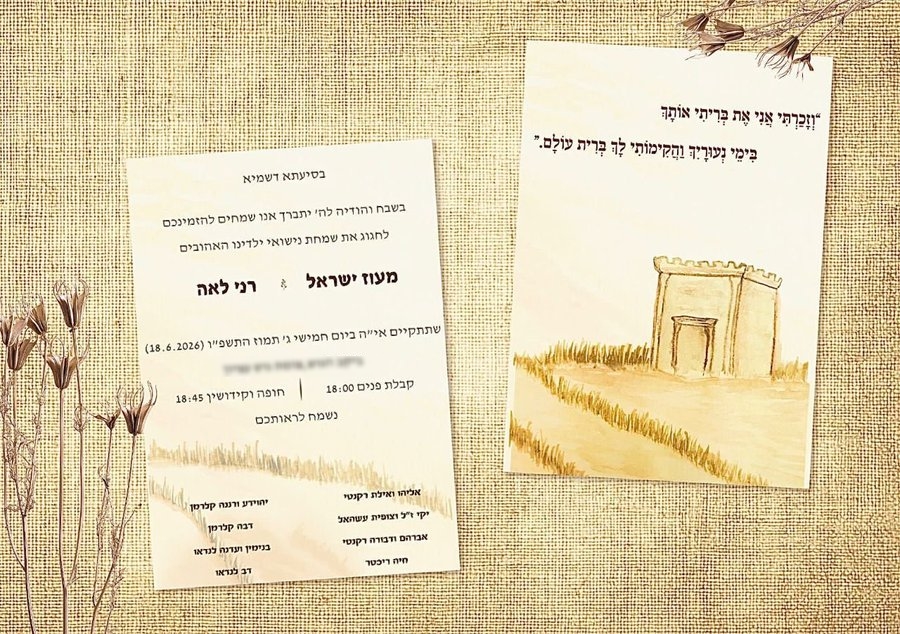 "וְזָכַרְתִּי אֲנִי אֶת בְּרִיתִי אוֹתָךְ
בִּימֵי נְעוּרָיִךְ וַהֲקִימוֹתִי לָךְ בְּרִית עוֹלָם."
בסיעתא דשמיא
בשבח והודיה לה' יתברך אנו שמחים להזמינכם
לחגוג את שמחת נישואי ילדינו האהובים
מעוז ישראל רני לאה
שתתקיים אי"ה ביום חמישי ג' תמוז התשפ"ו (18.6.2026)
קבלת פנים 18:00 | חופה וקידושין 18:45
נשמח לראותכם
אליהו ואילת רקנטי
יקי ז"ל וצופית עשהאל
אברהם ודבורה רקנטי
חיה ריכטר
יהוידע ורננה קלרמן
דבה קלרמן
בנימין ועדנה לנדאו
דב לנדאו